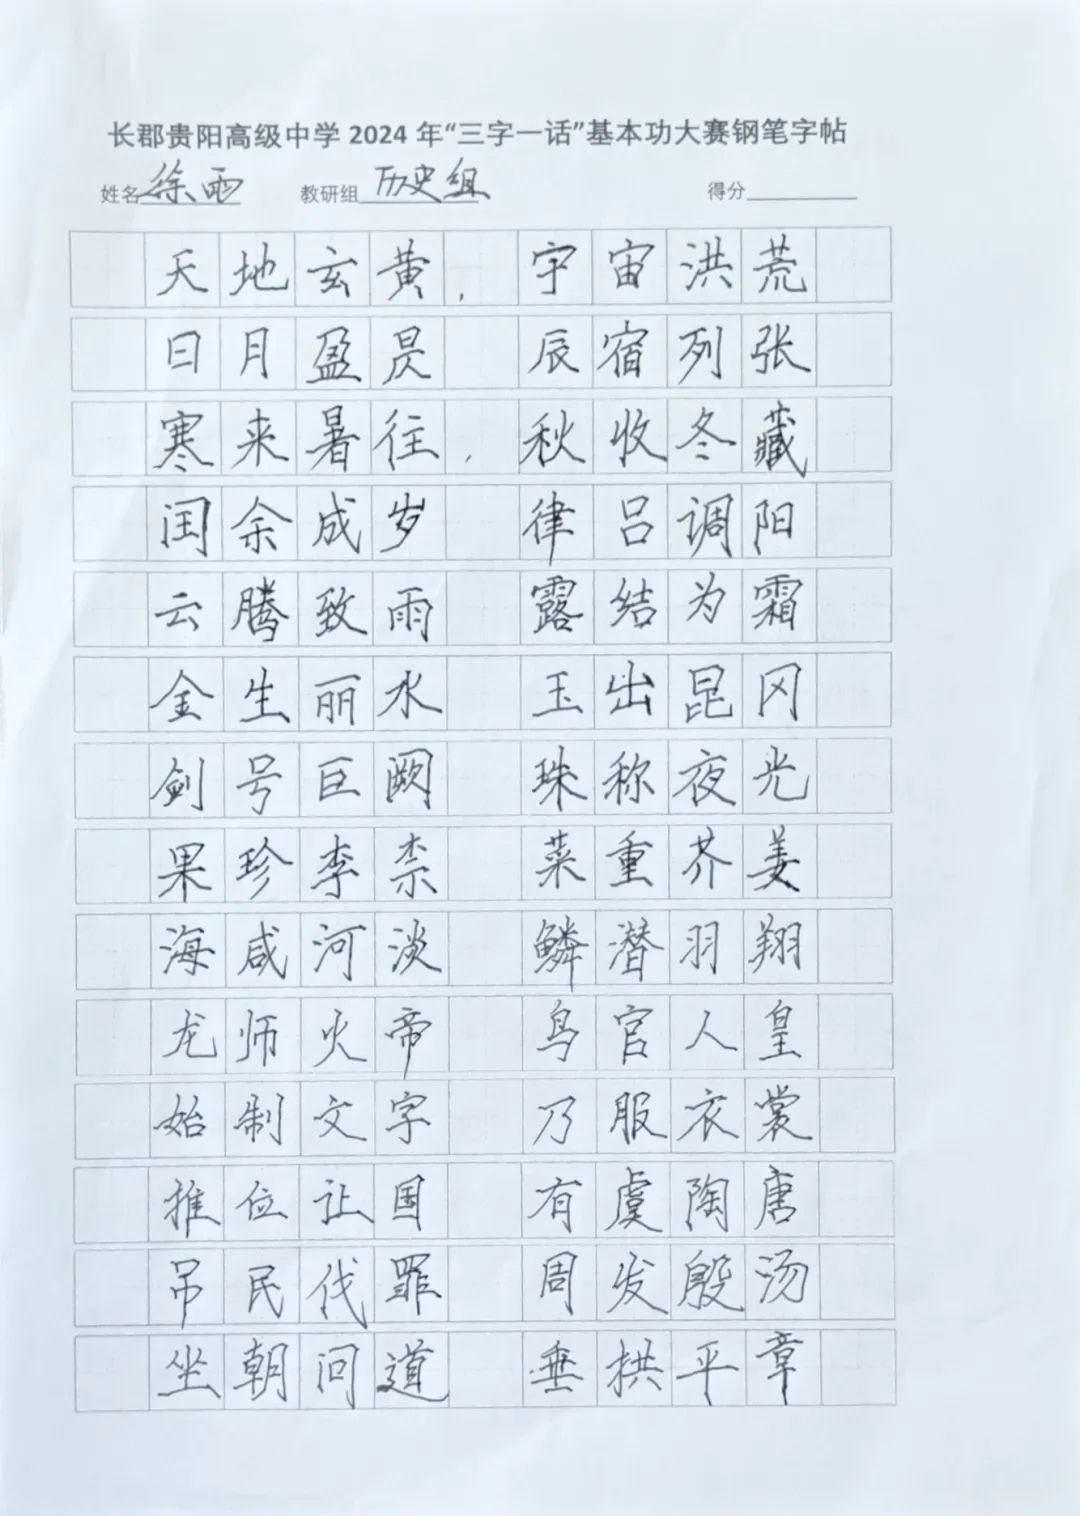 长郡贵阳高级中学2024年“三字一话”基本功大赛钢笔字帖
姓名 徐雨 教研组 历史组 得分
天地玄黄，宇宙洪荒
日月盈昃 辰宿列张
寒来暑往，秋收冬藏
闰余成岁 律吕调阳
云腾致雨 露结为霜
金生丽水 玉出昆冈
剑号巨阙 珠称夜光
果珍李柰 菜重芥姜
海咸河淡 鳞潜羽翔
龙师火帝 鸟官人皇
始制文字 乃服衣裳
推位让国 有虞陶唐
吊民伐罪 周发殷汤
坐朝问道 垂拱平章